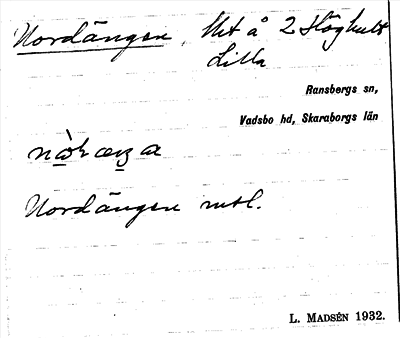 Nordängen, Urt å 2 Höghult
Lilla
Ransbergs sn,
Vadsbo hd, Skaraborgs län
Nordängen mtl.
L. MADSÉN 1932.